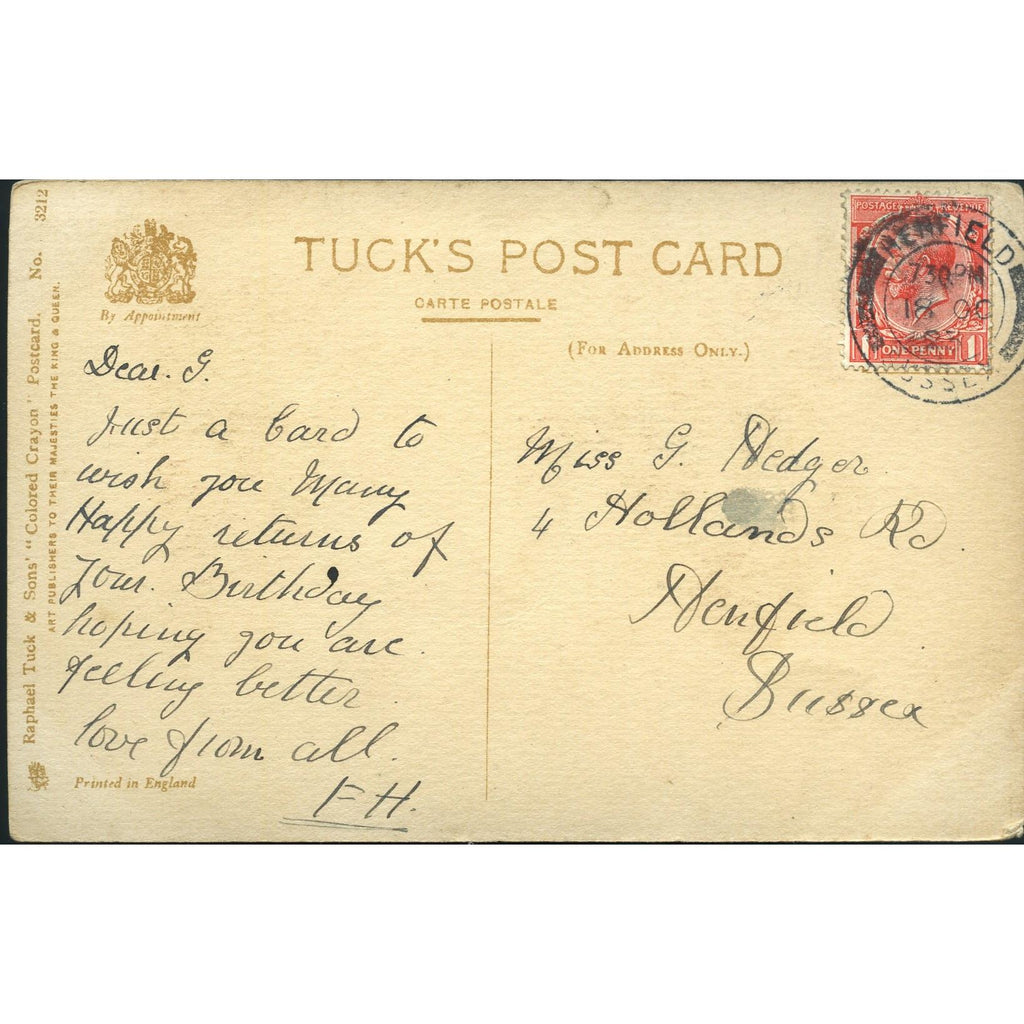 Raphael Tuck & Sons' "Colored Crayon" Postcard. No. 3212
ART PUBLISHERS TO THEIR MAJESTIES THE KING & QUEEN.
By Appointment
TUCK'S POST CARD
CARTE POSTALE
(FOR ADDRESS ONLY.)
POSTAGE REVENUE
1 ONE PENNY 1
HENFIELD
7 30 PM
18 OC
SUSSEX
Dear. G.
Just a Card to
wish you Many
Happy returns of
your. Birthday
hoping you are.
feeling better
love from all.
F H.
Printed in England
Miss G. Hedger
4 Hollands Rd.
Henfield
Sussex